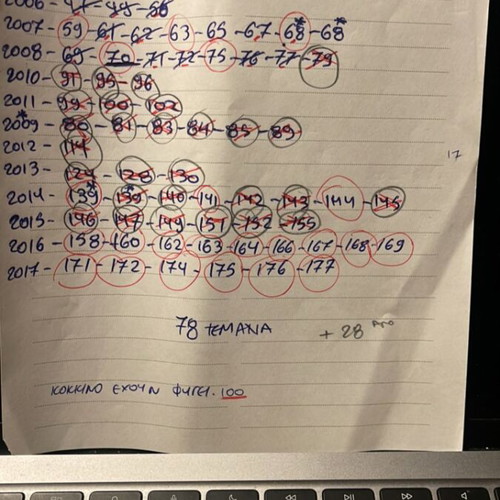 2006 - 47 - 48 - 56
2007 - 59 - 61 - 62 - 63 - 65 - 67 - 68* - 68*
2008 - 69 - 70 - 71 - 72 - 75 - 76 - 77 - 79
2010 - 91 - 95 - 96
2011 - 99 - 100 - 102
2009 - 80 - 81 - 83 - 84 - 85 - 89
2012 - 114
17
2013 - 124 - 128 - 130
2014 - 139 - 139 - 140 - 141 - 142 - 143 - 144 - 145
2015 - 146 - 147 - 149 - 151 - 152 - 155
2016 - 158 - 160 - 162 - 163 - 164 - 166 - 167 - 168 - 169
2017 - 171 - 172 - 174 - 175 - 176 - 177
78 ΤΕΜΑΧΙΑ
+ 28 από
ΚΟΚΚΙΝΟ ΕΧΟΥΝ ΦΥΓΕΙ. 100